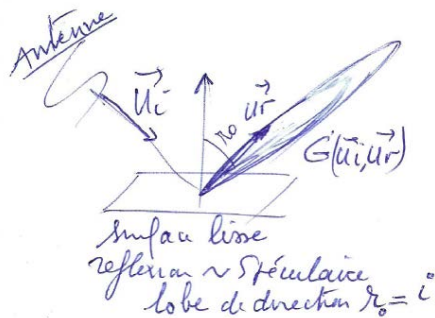 Antenne
Ui
r₀
Ur
G(Ui,Ur)
surface lisse
reflexion ~ spéculaire
lobe de direction r₀ = i